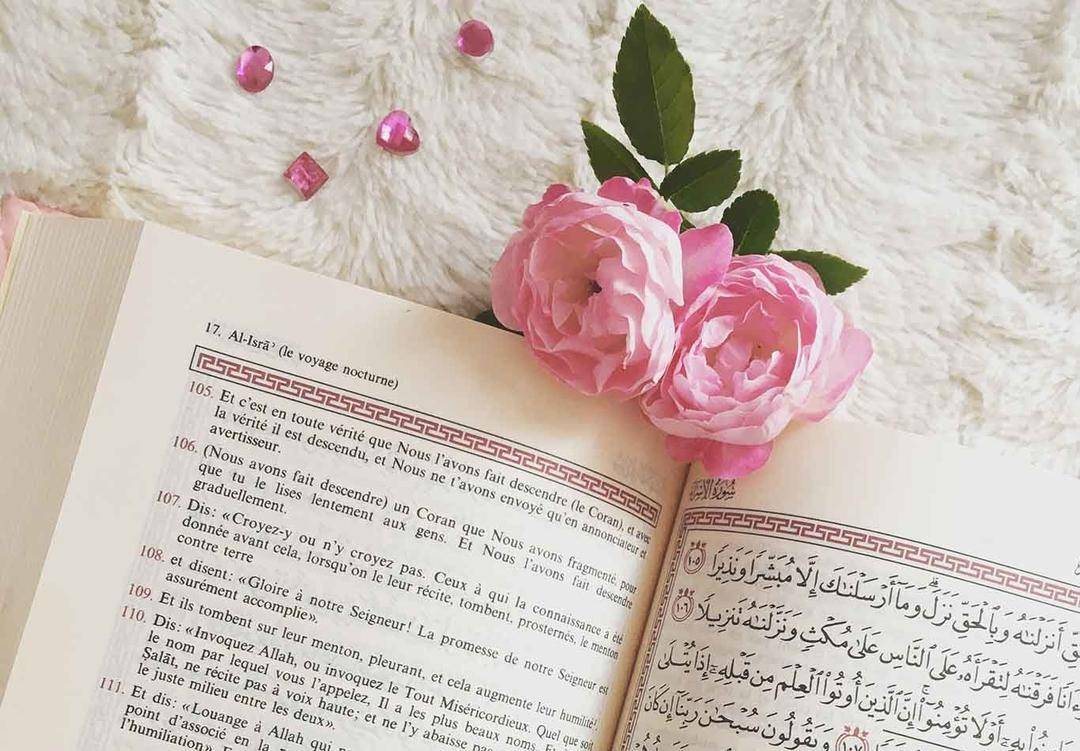 17. Al-Isrāʾ (le voyage nocturne)
105. Et c'est en toute vérité que Nous l'avons fait descendre (le Coran), et avec
la vérité il est descendu, et Nous ne t'avons envoyé qu'en annonciateur et
avertisseur.
106. (Nous avons fait descendre) un Coran que Nous avons fragmenté, pour
que tu le lises lentement aux gens. Et Nous l'avons fait descendre
graduellement.
107. Dis: «Croyez-y ou n'y croyez pas. Ceux à qui la connaissance a été
donnée avant cela, lorsqu'on le leur récite, tombent, prosternés, le menton
contre terre
108. et disent: «Gloire à notre Seigneur! La promesse de notre Seigneur est
assurément accomplie».
109. Et ils tombent sur leur menton, pleurant, et cela augmente leur humilité!
110. Dis: «Invoquez Allah, ou invoquez le Tout Miséricordieux. Quel que soit
le nom par lequel vous l'appelez, Il a les plus beaux noms. Et
Ṣalāt, ne récite pas à voix haute; et ne l'y abaisse pas
le juste milieu entre les deux».
111. Et dis: «Louange à Allah qui
point d'associé en la
l'humiliation».
سُورَةُ الْإِسْرَاءِ
أَنزَلْنَٰهُ وَبِٱلْحَقِّ نَزَلَ وَمَآ أَرْسَلْنَٰكَ إِلَّا مُبَشِّرًا وَنَذِيرًا ١٠٥
فَرَقْنَٰهُ لِتَقْرَأَهُۥ عَلَى ٱلنَّاسِ عَلَىٰ مُكْثٍ وَنَزَّلْنَٰهُ تَنزِيلًا ١٠٦
أَوْ لَا تُؤْمِنُوٓا۟ إِنَّ ٱلَّذِينَ أُوتُوا۟ ٱلْعِلْمَ مِن قَبْلِهِۦٓ إِذَا يُتْلَىٰ
١٠٧ وَيَقُولُونَ سُبْحَٰنَ رَبِّنَآ إِن كَانَ